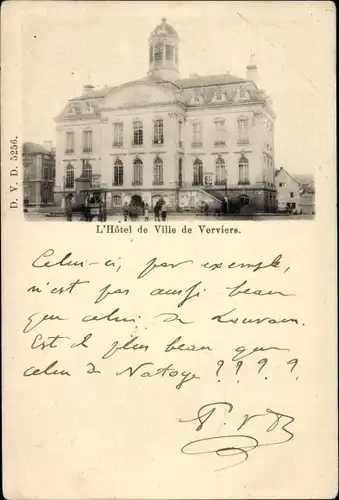 D. V. D. 5256.
L'Hôtel de Ville de Verviers.
Celui-ci, par exemple,
n'est pas aussi beau
que celui de Louvain.
Est-il plus beau que
celui de Natoye ? ? ? ?